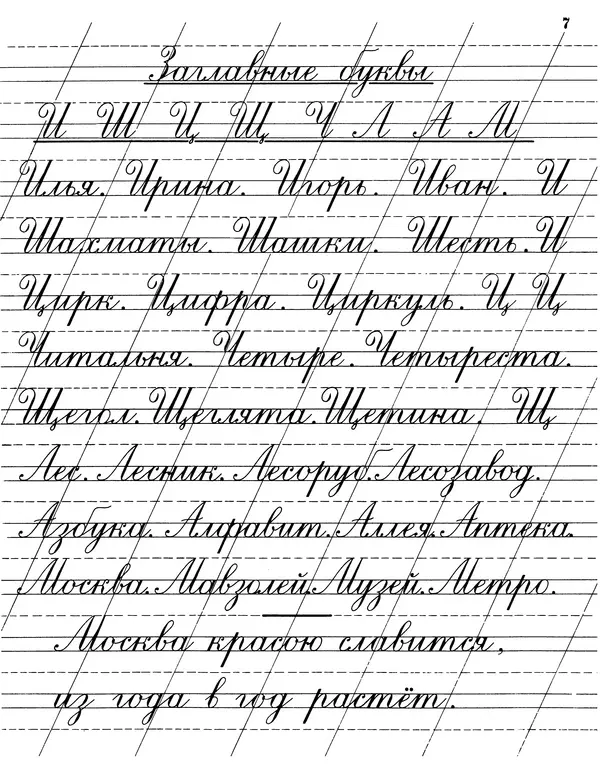 7
Заглавные буквы
И Ш Ц Щ Ч Л А М
Илья. Ирина. Игорь. Иван. И
Шахматы. Шашки. Шесть. И
Цирк. Цифра. Циркуль. Ц Ц
Читальня. Четыре. Четыреста.
Щегол. Щеглята. Щетина. Щ
Лес. Лесник. Лесоруб. Лесозавод.
Азбука. Алфавит. Аллея. Аптека.
Москва. Мавзолей. Музей. Метро.
Москва красою славится,
из года в год растёт.